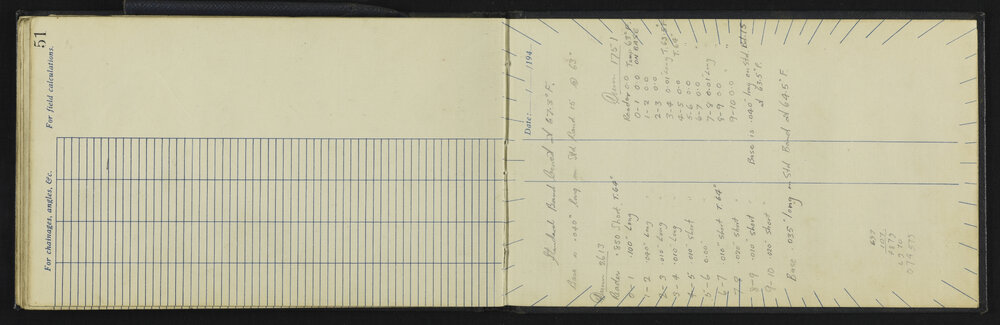 51
For field calculations.
For chainages, angles, &c.
Date: / / 194
Standard Band Correct at 57.5° F.
Base is .040" long on Std Band 15 @ 63°
Drum 2613
Reader .850 Short T.64°
0-1 .100 Long
1-2 .040" Long
2-3 .010" Long
3-4 .010" Long
4-5 .010" Short
5-6 0.00
6-7 .010" Short T.64°
7-8 .020" Short
8-9 .010" Short
9-10 .020" Short
Drum 1751
Reader 0.0 Temp 63° F.
0-1 0.0 ON BASE
1-2 0.0
2-3 0.0
3-4 0.01 Long T.63.5°
4-5 0.0 T.64°
5-6 0.0
6-7 0.0
7-8 0.01 Long
8-9 0.0
9-10 0.0
Base is .040" long on Std. Bd. 15
at 63.5° F.
Base .035" long on Std Band at 64.5° F.